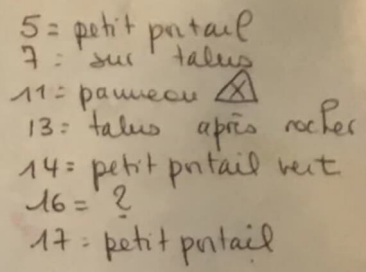 5 = petit portail
7 = sur talus
11 = panneau
13 = talus après rocher
14 = petit portail vert
16 = ?
17 = petit portail